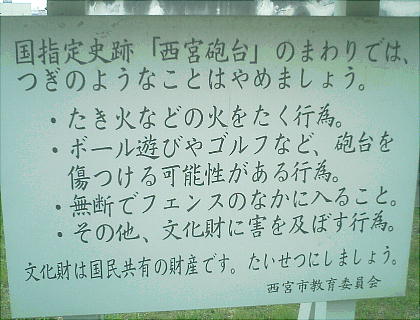 国指定史跡「西宮砲台」のまわりでは、
つぎのようなことはやめましょう。
・たき火などの火をたく行為。
・ボール遊びやゴルフなど、砲台を
傷つける可能性がある行為。
・無断でフェンスのなかに入ること。
・その他、文化財に害を及ぼす行為。
文化財は国民共有の財産です。たいせつにしましょう。
西宮市教育委員会